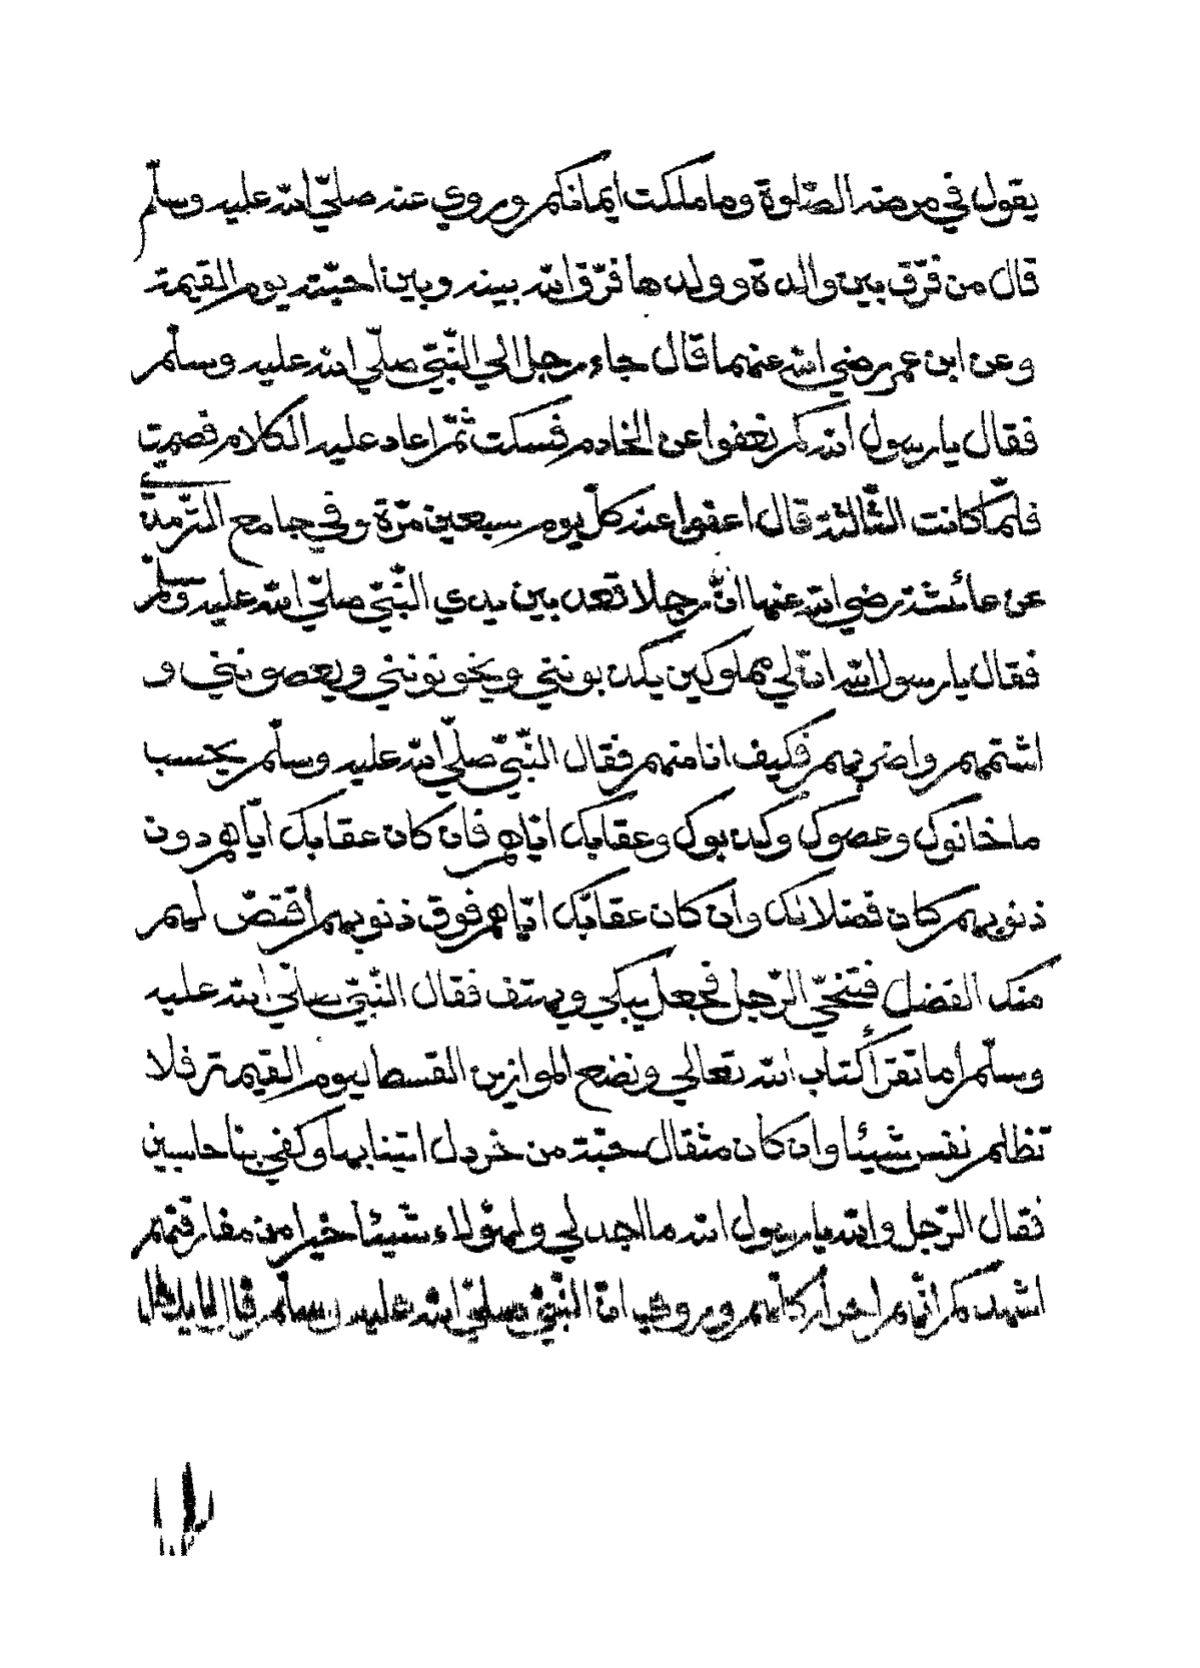 يقول في مرضه الصّلوة وما ملكت ايمانكم وروي عنه صلّي الله عليه وسلّم
قال من فرّق بين والدة وولدها فرّق الله بينه وبين احبّته يوم القيمة
وعن ابن عمر رضي الله عنهما قال جاء رجل الي النّبيّ صلّي الله عليه وسلّم
فقال يا رسول الله كم نعفوا عن الخادم فسكت ثمّ اعاد عليه الكلام فصمت
فلمّا كانت الثّالثة قال اعفوا عنه كلّ يوم سبعين مرّة وفي جامع التّرمذيّ
عن عائشة رضي الله عنها انّ رجلا قعد بين يدي النّبيّ صلّي الله عليه وسلّم
فقال يا رسول الله انّ لي مملوكين يكذبونني ويخونونني ويعصونني و
اشتمهم واضربهم فكيف انا منهم فقال النّبيّ صلّي الله عليه وسلّم يحسب
ما خانوك وعصوك وكذبوك وعقابك اياهم فان كان عقابك ايّاهم دون
ذنوبهم كان فضلا لك وان كان عقابك ايّاهم فوق ذنوبهم اقتصّ لهم
منك الفضل فتنحّي الرّجل فجعل يبكي ويهتف فقال النّبيّ صلّي الله عليه
وسلّم اما تقرأ كتاب الله تعالي ونضع الموازين القسط ليوم القيمة فلا
تظلم نفس شيئا وان كان مثقال حبّة من خردل اتينا بها وكفي بنا حاسبين
فقال الرّجل والله يا رسول الله ما اجد لي ولهؤلاء شيئا خيرا من مفارقتهم
اشهدكم انّهم احرار كلّهم وروي انّ النّبيّ صلّي الله عليه وسلّم قال